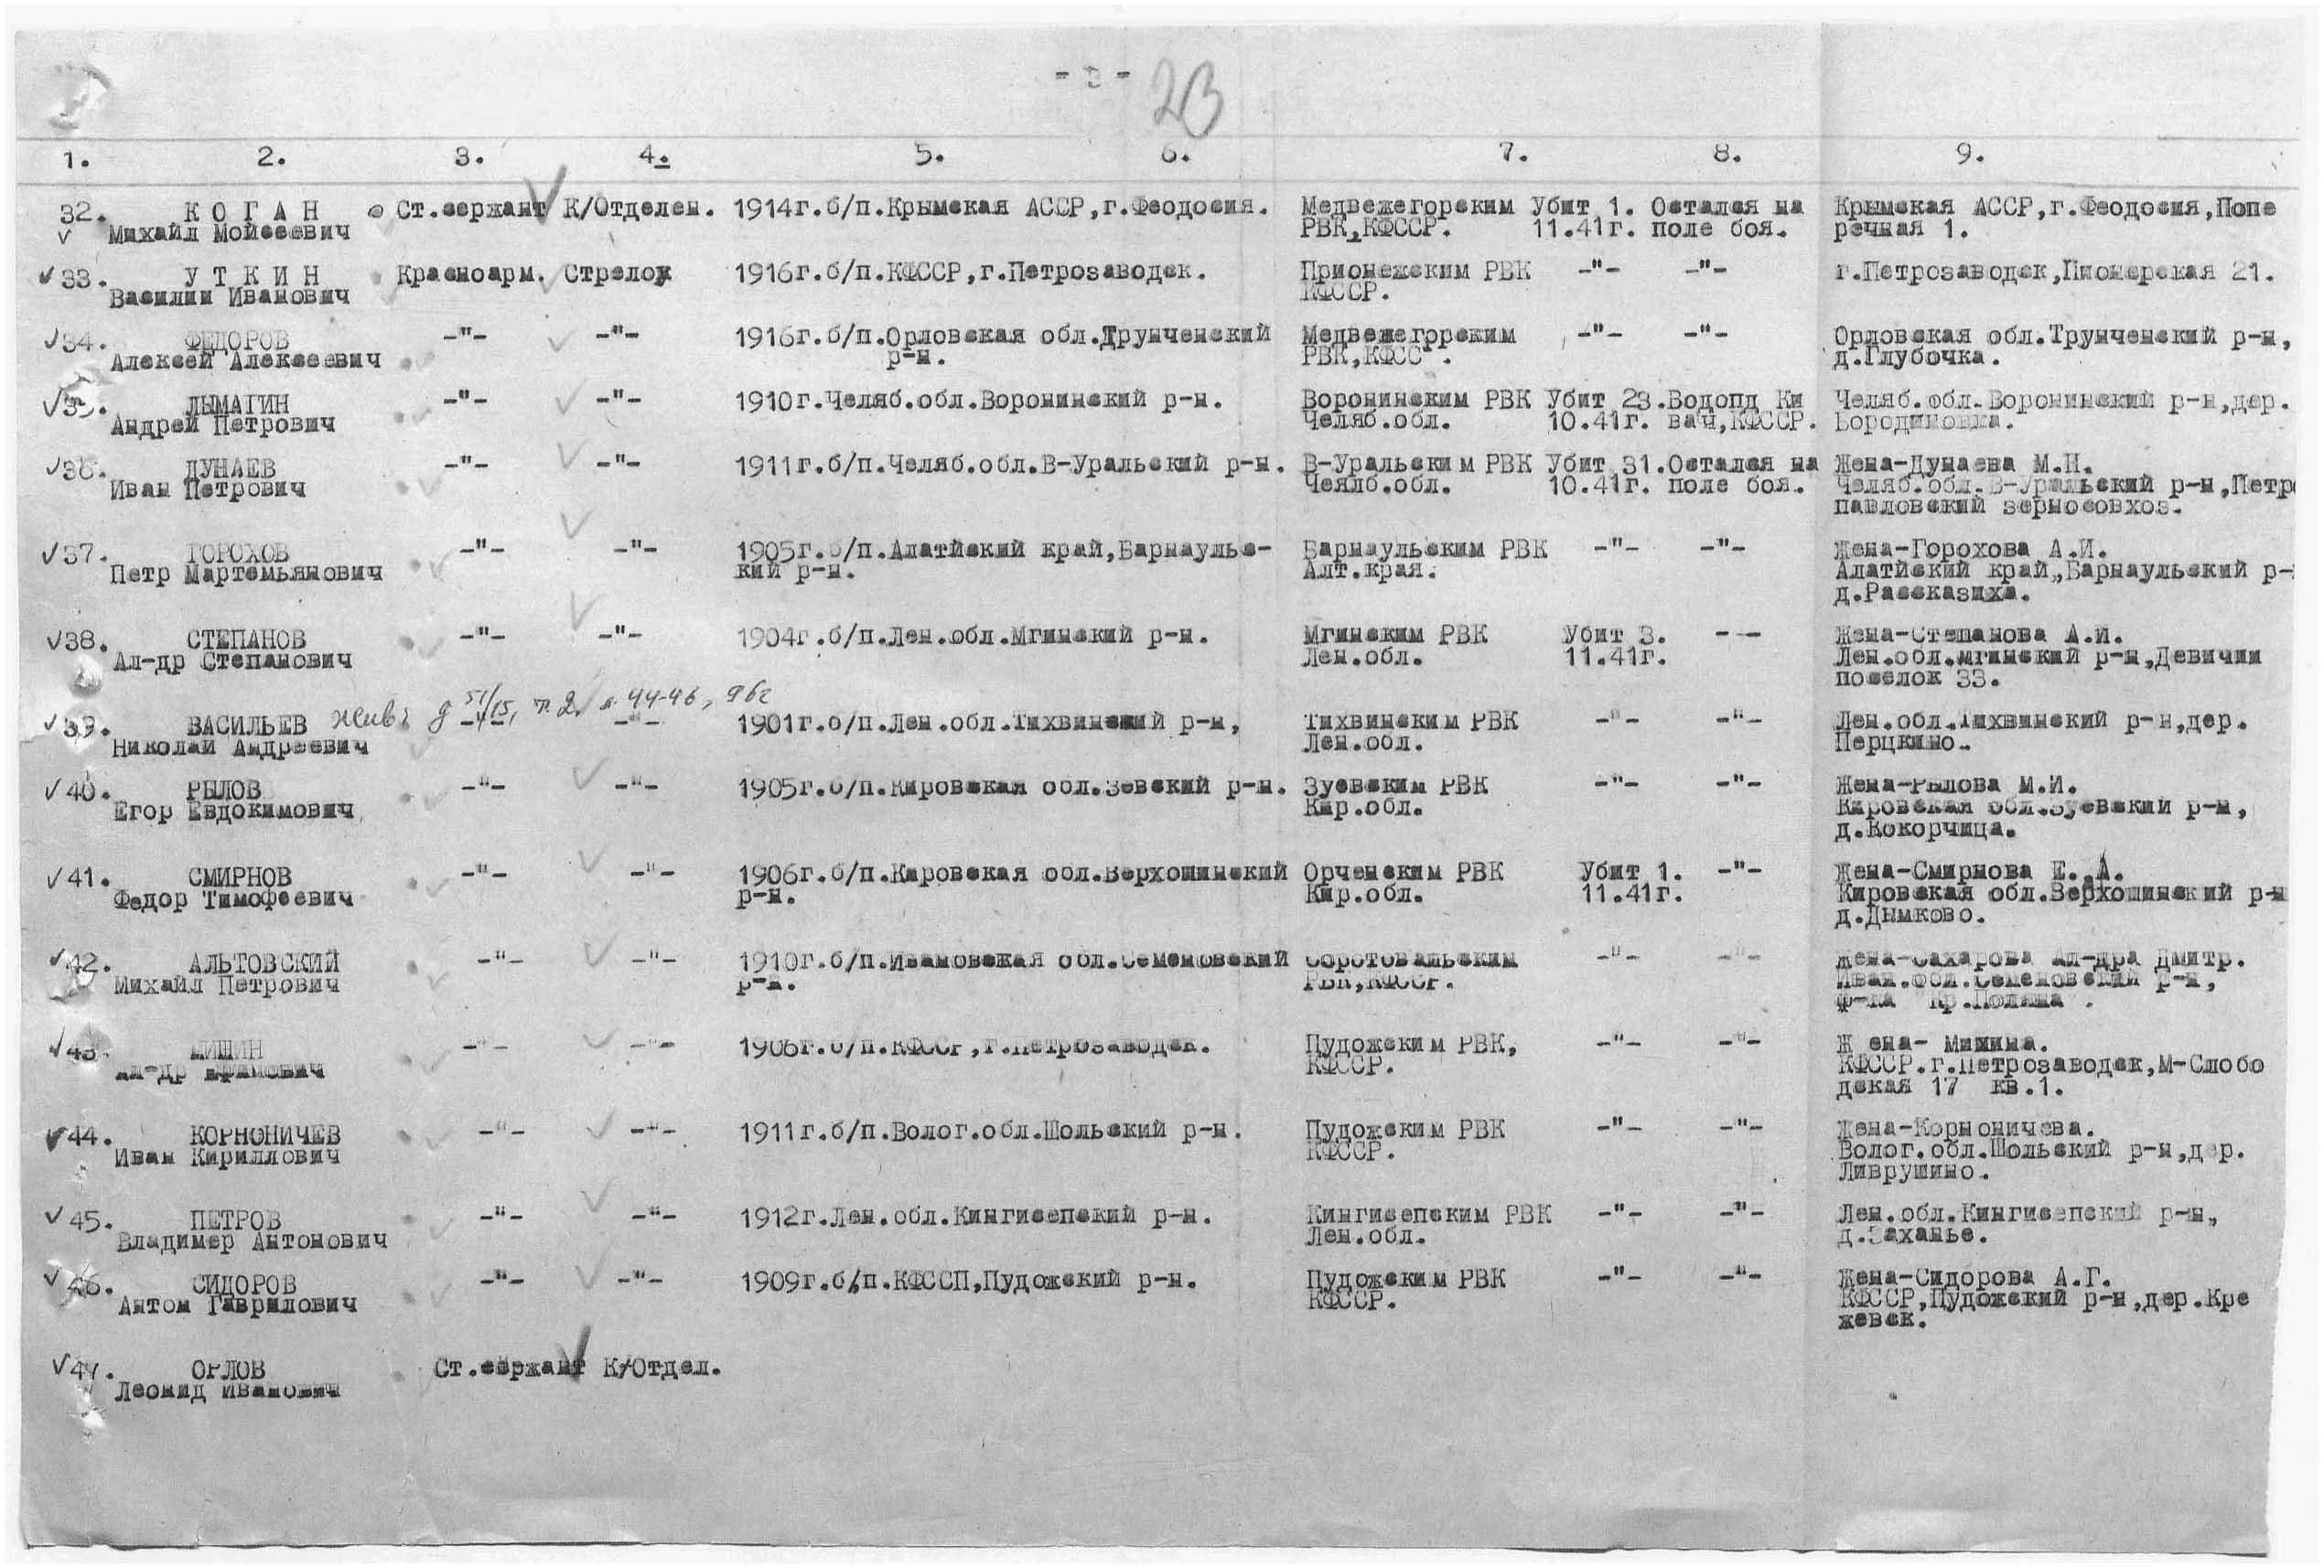 - 3 - 23
1. 2. 3. 4. 5. 6. 7. 8. 9.
32. КОГАН Ст.сержант К/Отделен. 1914г.б/п.Крымская АССР,г.Феодосия. Медвежегорским Убит 1. Остался на Крымская АССР,г.Феодосия,Попе
Михайл Мойсеевич РВК,КФССР. 11.41г. поле боя. речная 1.
33. УТКИН Красноарм. Стрелок 1916г.б/п.КФССР,г.Петрозаводск. Прионежским РВК -"- -"- г.Петрозаводск,Пионерская 21.
Василий Иванович КФССР.
34. ФЕДОРОВ -"- -"- 1916г.б/п.Орловская обл.Трунченский Медвежегорским -"- -"- Орловская обл.Трунченский р-н,
Алексей Алексеевич р-н. РВК,КФСС . д.Глубочка.
35. ЛЫМАГИН -"- -"- 1910г.Челяб.обл.Воронинский р-н. Воронинским РВК Убит 23.Водопд Ки Челяб.обл.Воронинский р-н,дер.
Андрей Петрович Челяб.обл. 10.41г. вач,КФССР. Бородиновка.
36. ДУНАЕВ -"- -"- 1911г.б/п.Челяб.обл.В-Уральский р-н. В-Уральским РВК Убит 31.Остался на Жена-Дунаева М.Н.
Иван Петрович Чеялб.обл. 10.41г. поле боя. Челяб.обл.В-Уральский р-н,Петро
павловский зерносовхоз.
37. ГОРОХОВ -"- -"- 1905г.б/п.Алатйский край,Барнаульс- Барнаульским РВК -"- -"- Жена-Горохова А.И.
Петр Мартемьянович кий р-н. Алт.края. Алатйский край,,Барнаульский р-
д.Рассказиха.
38. СТЕПАНОВ -"- -"- 1904г.б/п.Лен.обл.Мгинский р-н. Мгинским РВК Убит 3. --- Жена-Степанова А.И.
Ал-др Степанович Лен.обл. 11.41г. Лен.обл.Мгинский р-н,Девичии
поселок 33.
39. ВАСИЛЬЕВ жив: д 51/15, т.2. л.44-46, -"- -"- 1901г.б/п.Лен.обл.Тихвинский р-н, Тихвинским РВК -"- -"- Лен.обл.Тихвинский р-н,дер.
Николай Андреевич Лен.обл. Перцкино.
40. РЫЛОВ -"- -"- 1905г.б/п.Кировская обл.Зевский р-н. Зуевским РВК -"- -"- Жена-Рылова М.И.
Егор Евдокимович Кир.обл. Кировская обл.Зуевский р-н,
д.Кокорчица.
41. СМИРНОВ -"- -"- 1906г.б/п.Кировская обл.Верхошинский Орченским РВК Убит 1. -"- Жена-Смирнова Е.А.
Федор Тимофеевич р-н. Кир.обл. 11.41г. Кировская обл.Верхошинский р-н
д.Дымково.
42. АЛЬТОВСКИЙ -"- -"- 1910г.б/п.Ивановская обл.Семеновский Соротовальским -"- -"- Жена-Сахарова Ал-дра Дмитр.
Михайл Петрович р-н. РВК,КФССР. Иван.обл.Семеновский р-н,
ф-ка Кр.Поляна .
43. МИШИН -"- -"- 1906г.б/п.КФССР,г.Петрозаводск. Пудожским РВК, -"- -"- Ж ена- Мишина.
Ал-др Ефимович КФССР. КФССР.г.Петрозаводск,М-Слобо
дская 17 кв.1.
44. КОРНОНИЧЕВ -"- -"- 1911г.б/п.Волог.обл.Шольский р-н. Пудожским РВК -"- -"- Жена-Корноничева.
Иван Кириллович КФССР. Волог.обл.Шольский р-н,дер.
Ливрушино.
45. ПЕТРОВ -"- -"- 1912г.Лен.обл.Кингисепский р-н. Кингисепским РВК -"- -"- Лен.обл.Кингисепский р-н,
Владимер Антонович Лен.обл. д.Заханье.
46. СИДОРОВ -"- -"- 1909г.б/п.КФССП,Пудожский р-н. Пудожским РВК -"- -"- Жена-Сидорова А.Г.
Антон Гаврилович КФССР. КФССР,Пудожский р-н,дер.Кре
жевск.
47. ОРЛОВ Ст.сержант К/Отдел.
Леонид Иванович